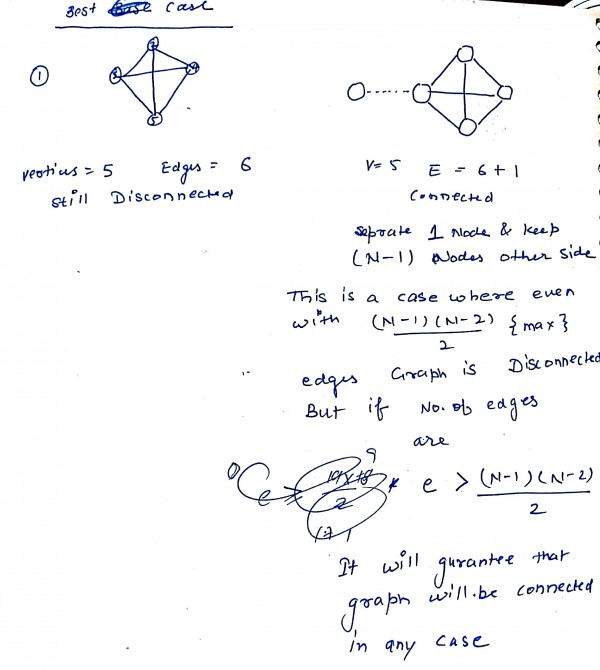 Best Case
① 1 2 3 5
vertius = 5 Edges = 6
still Disconnected
V= 5 E = 6 + 1
Connected
seprate 1 Node & keep
(N-1) Nodes other side
This is a case where even
with (N-1)(N-2)/2 {max}
edges Graph is Disconnected
But if No. of edges
are
e > (N-1)(N-2)/2
It will gurantee that
graph will be connected
in any case